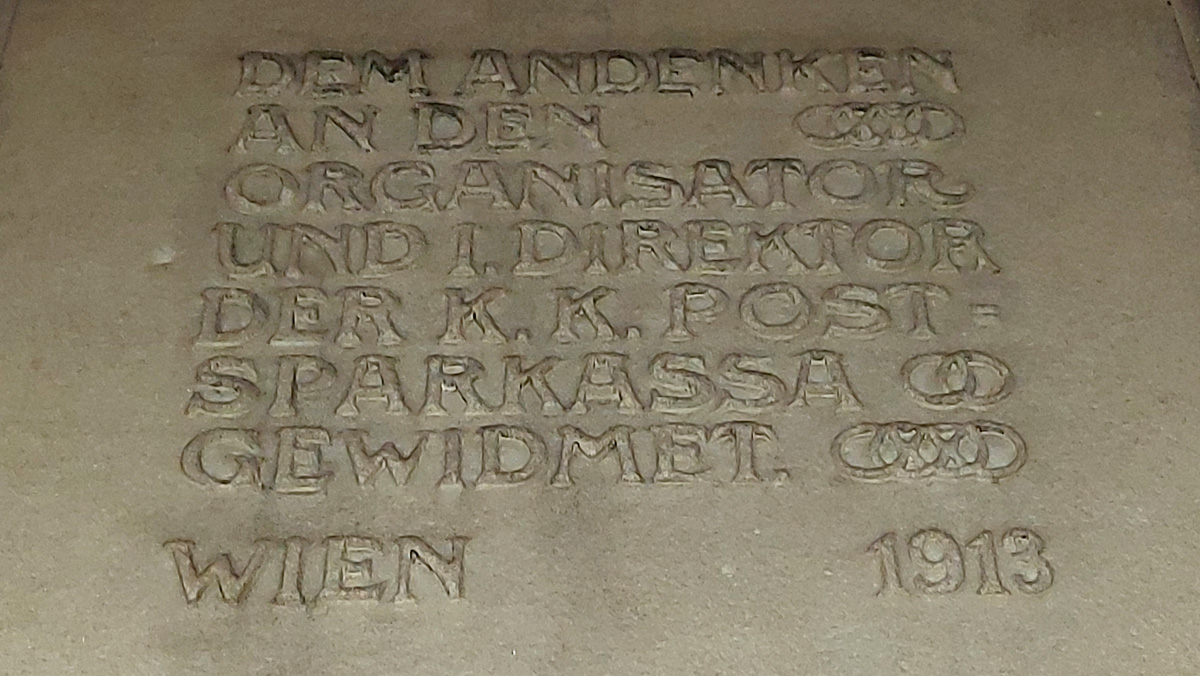 DEM ANDENKEN
AN DEN
ORGANISATOR
UND I. DIREKTOR
DER K. K. POST=
SPARKASSA
GEWIDMET.
WIEN 1913